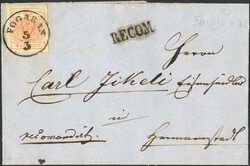 FOGARAS
5
3
RECOM.
Herrn
Carl Jikeli Eisenhändler
in
recomandirt Hermannstadt